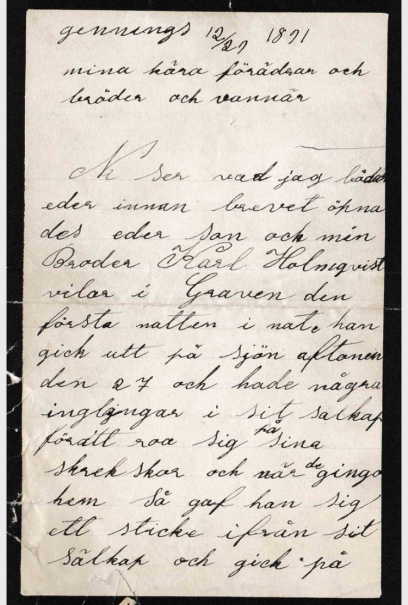 gennings 12/27 1891
mina kära förädrar och
bröder och vannär
Ni ser vad jag bådar
eder innan brevet öpna
des eder son och min
Broder Karl Holmqvist
vilar i Graven den
första natten i nate han
gick utt på sjön aftonen
den 27 och hade några
inglingar i sit salkap
föratt roa sig på sina
skrekskor och när de gingo
hem så gaf han sig
ett sticke ifrån sit
sälkap och gick på